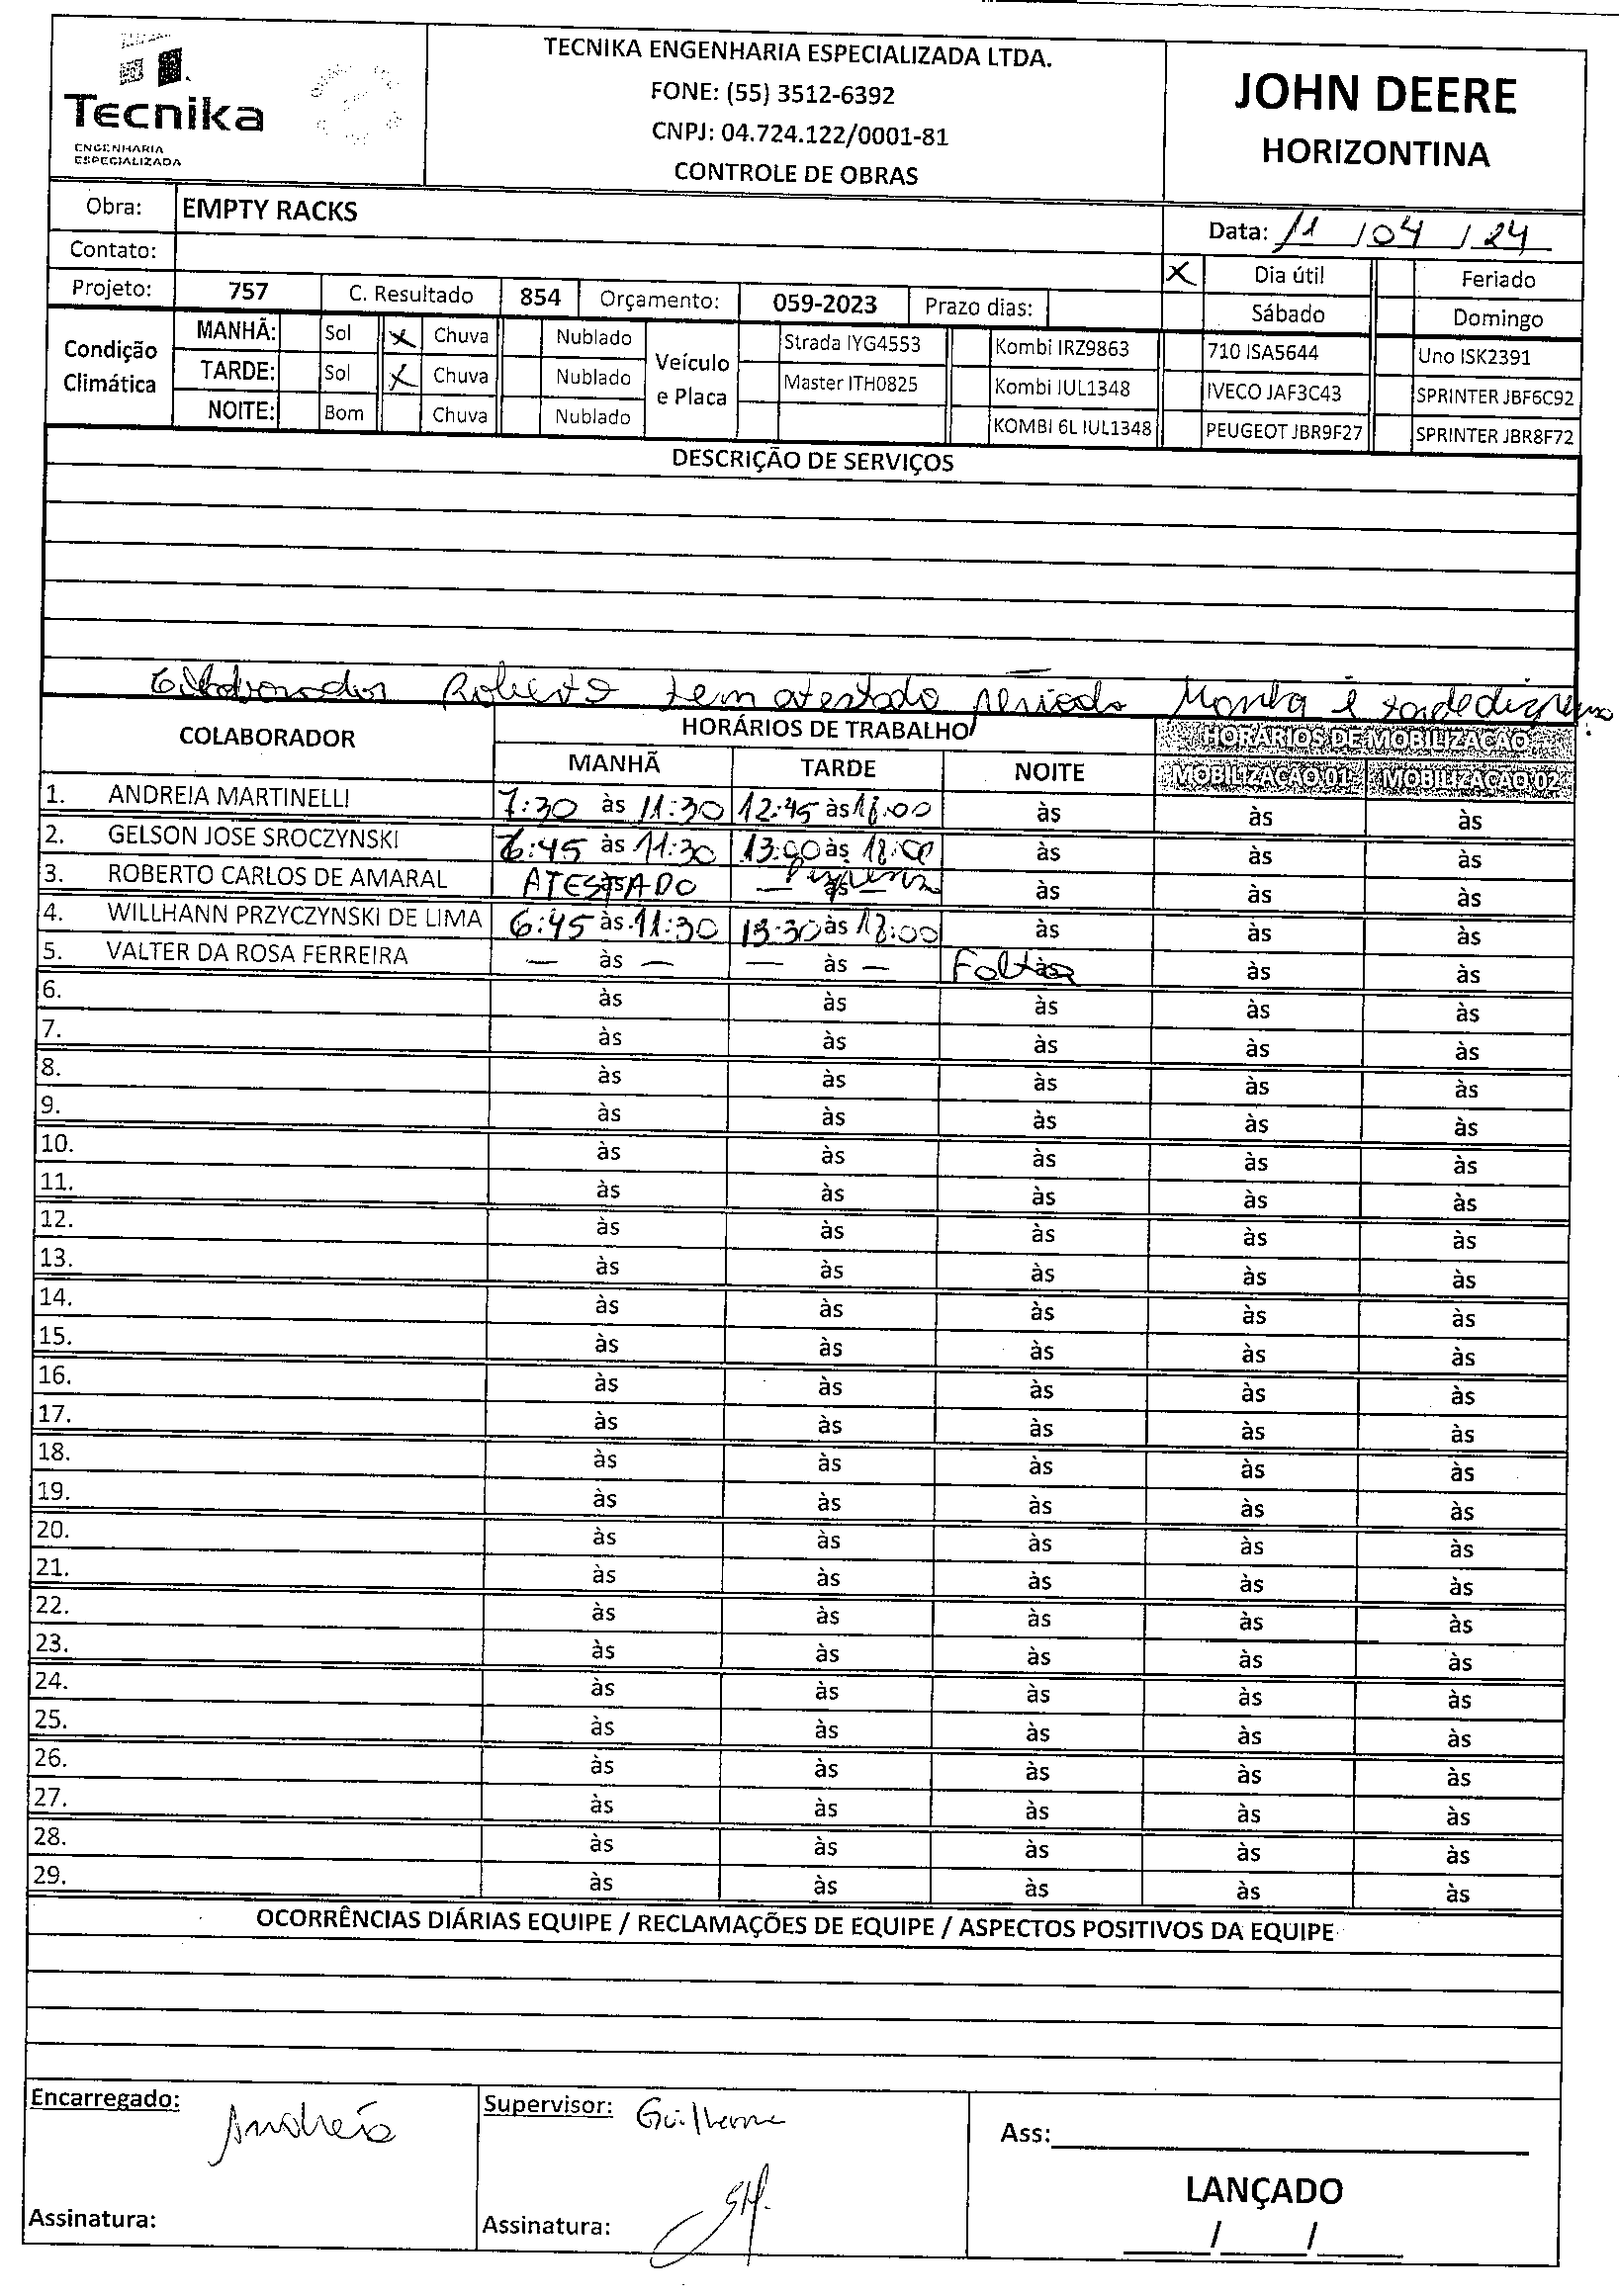 Tecnika
ENGENHARIA
ESPECIALIZADA
TECNIKA ENGENHARIA ESPECIALIZADA LTDA.
FONE: (55) 3512-6392
CNPJ: 04.724.122/0001-81
CONTROLE DE OBRAS
JOHN DEERE
HORIZONTINA
Obra: EMPTY RACKS
Data: 11/04/24
Contato:
X Dia útil Feriado
Projeto: 757 C. Resultado 854 Orçamento: 059-2023 Prazo dias:
Sábado Domingo
Condição Climática
MANHÃ: Sol X Chuva Nublado
TARDE: Sol X Chuva Nublado
NOITE: Bom Chuva Nublado
Veículo e Placa
Strada IYG4553 Kombi IRZ9863 710 ISA5644 Uno ISK2391
Master ITH0825 Kombi IUL1348 IVECO JAF3C43 SPRINTER JBF6C92
KOMBI 6L IUL1348 PEUGEOT JBR9F27 SPRINTER JBR8F72
DESCRIÇÃO DE SERVIÇOS
Colaborador Roberto tem atestado período Manhã e tarde
COLABORADOR HORÁRIOS DE TRABALHO HORÁRIOS DE MOBILIZAÇÃO
MANHÃ TARDE NOITE MOBILIZAÇÃO 01 MOBILIZAÇÃO 02
1. ANDREIA MARTINELLI 7:30 às 11:30 12:45 às 18:00 às às às
2. GELSON JOSE SROCZYNSKI 6:45 às 11:30 13:00 às 18:00 às às às
3. ROBERTO CARLOS DE AMARAL ATESTADO às — às — às às às
4. WILLHANN PRZYCZYNSKI DE LIMA 6:45 às 11:30 13:30 às 18:00 às às às
5. VALTER DA ROSA FERREIRA — às — — às — Falta às às às
6. às às às às às
7. às às às às às
8. às às às às às
9. às às às às às
10. às às às às às
11. às às às às às
12. às às às às às
13. às às às às às
14. às às às às às
15. às às às às às
16. às às às às às
17. às às às às às
18. às às às às às
19. às às às às às
20. às às às às às
21. às às às às às
22. às às às às às
23. às às às às às
24. às às às às às
25. às às às às às
26. às às às às às
27. às às às às às
28. às às às às às
29. às às às às às
OCORRÊNCIAS DIÁRIAS EQUIPE / RECLAMAÇÕES DE EQUIPE / ASPECTOS POSITIVOS DA EQUIPE
Encarregado: Andreia
Supervisor: Guilherme
Ass:
LANÇADO
Assinatura:
Assinatura:
/ /